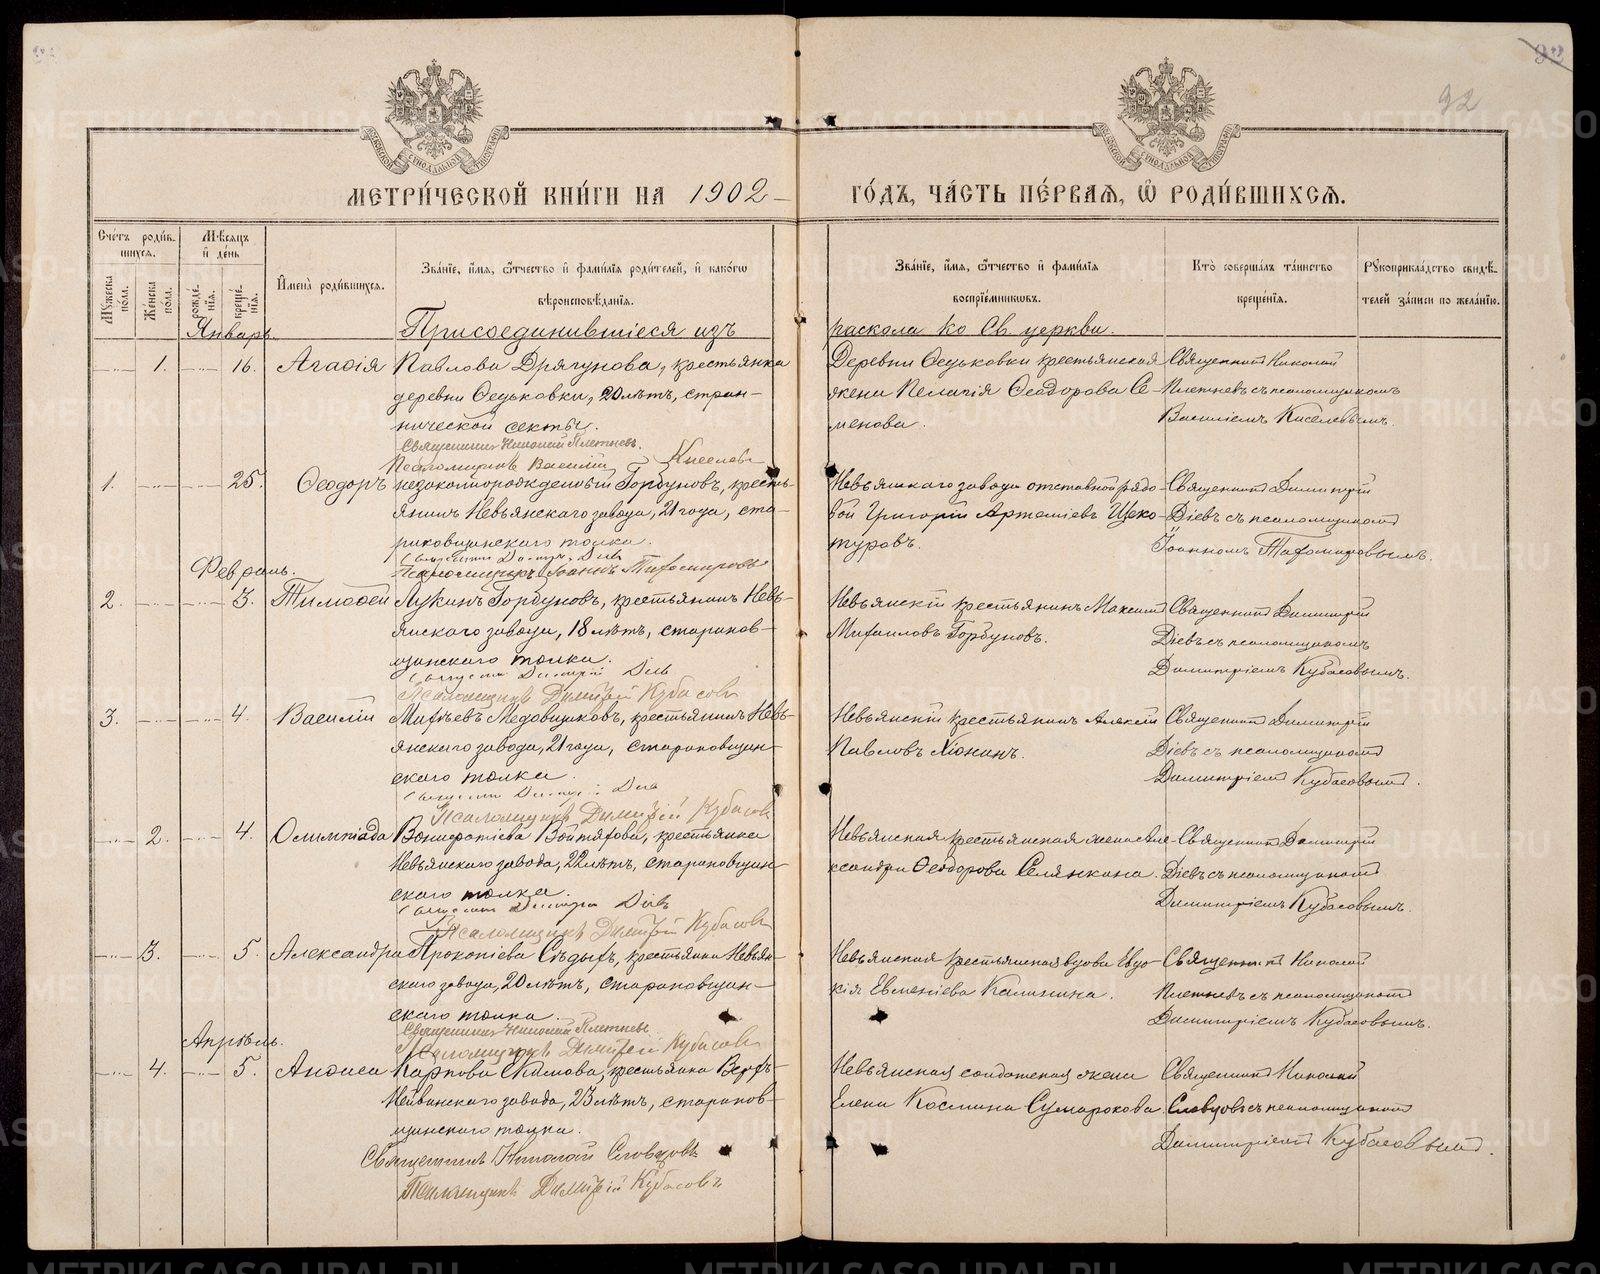 92
МЕТРИ́ЧЕСКОЙ КНИ́ГИ НА 1902 ГО́ДЪ, ЧА́СТЬ ПЕ́РВАѦ, Ѡ҆ РОДИ́ВШИХСѦ.
Сче́тъ роди́в-
шихсѧ.
Мꙋ́жеска по́ла.
Же́нска по́ла.
Мѣ́сѧцъ и҆ де́нь
рожде́-нїѧ.
креще́-нїѧ.
И҆мена̀ роди́вшихсѧ.
Зва́нїе, и҆́мѧ, ѻ҆́тчество и҆ фами́лїѧ роди́телей, и҆ како́гѡ
вѣроисповѣ́данїѧ.
Зва́нїе, и҆́мѧ, ѻ҆́тчество и҆ фами́лїѧ
воспрїе́мникѡвъ.
Кто̀ соверша́лъ та́инство
креще́нїѧ.
Рꙋкоприкла́дство свидѣ́-
телей за́писи по жела́нїю.
Январь.
Присоединившіеся изъ раскола ко Св. церкви.
1. 16. Агаѳія
Павлова Дрягунова, крестьянка
деревни Ѳедьковки, 20 лѣтъ, стран-
нической секты.
Священникъ Николай Плетневъ.
Псаломщикъ Василій Киселевъ
Деревни Ѳедьковки крестьянская
жена Пелагія Ѳеодорова Се-
менова.
Священникъ Николай
Плетневъ съ псаломщикомъ
Василіемъ Киселевымъ.
1. 25. Ѳеодоръ
незаконнорожденный Горбуновъ, кресть-
янинъ Невьянскаго завода, 21 года, ста-
риковщинскаго толка.
Священникъ Димитрій Діевъ
Псаломщикъ Іоаннъ Тихомировъ
Невьянскаго завода отставной рядо-
вой Григорій Артеміевъ Щеко-
туровъ.
Священникъ Димитрій
Діевъ съ псаломщикомъ
Іоанномъ Тихомировымъ.
Февраль.
2. 3. Тимоѳей
Лукинъ Горбуновъ, крестьянинъ Невь-
янскаго завода, 18 лѣтъ, стариков-
щинскаго толка.
Священникъ Димитрій Діевъ
Псаломщикъ Димитрій Кубасовъ
Невьянскій крестьянинъ Максимъ
Михаиловъ Горбуновъ.
Священникъ Димитрій
Діевъ съ псаломщикомъ
Димитріемъ Кубасовымъ.
3. 4. Василій
Михѣевъ Медовщиковъ, крестьянинъ Невь-
янскаго завода, 21 года, стариковщин-
скаго толка.
Священникъ Димитрій Діевъ
Псаломщикъ Димитрій Кубасовъ
Невьянскій крестьянинъ Алексій
Павловъ
Священникъ Димитрій
Діевъ съ псаломщикомъ
Димитріемъ Кубасовымъ.
2. 4. Олимпіада
Вонифатіева крестьянка
Невьянскаго завода, 22 лѣтъ, стариковщин-
скаго толка.
Священникъ Димитрій Діевъ
Псаломщикъ Димитрій Кубасовъ
Невьянская крестьянская жена Але-
ксандра Ѳеодорова Селянкина.
Священникъ Димитрій
Діевъ съ псаломщикомъ
Димитріемъ Кубасовымъ.
3. 5. Александра
Прокопіева Сѣдыхъ, крестьянка Невьян-
скаго завода, 20 лѣтъ, стариковщин-
скаго толка.
Священникъ Николай Плетневъ
Псаломщикъ Димитрій Кубасовъ
Невьянская крестьянская вдова Евдо-
кія Евменіева Калинина.
Священникъ Николай
Плетневъ съ псаломщикомъ
Димитріемъ Кубасовымъ.
Апрѣль.
4. 5. Анѳиса
Карпова крестьянка Верхъ-
Нейвинскаго завода, 23 лѣтъ, стариков-
щинскаго толка.
Священникъ Николай Словцовъ
Псаломщикъ Димитрій Кубасовъ
Невьянская солдатская жена
Елена Космина Сумарокова.
Священникъ Николай
Словцовъ съ псаломщикомъ
Димитріемъ Кубасовымъ.
METRIKI.GASO-URAL.RU